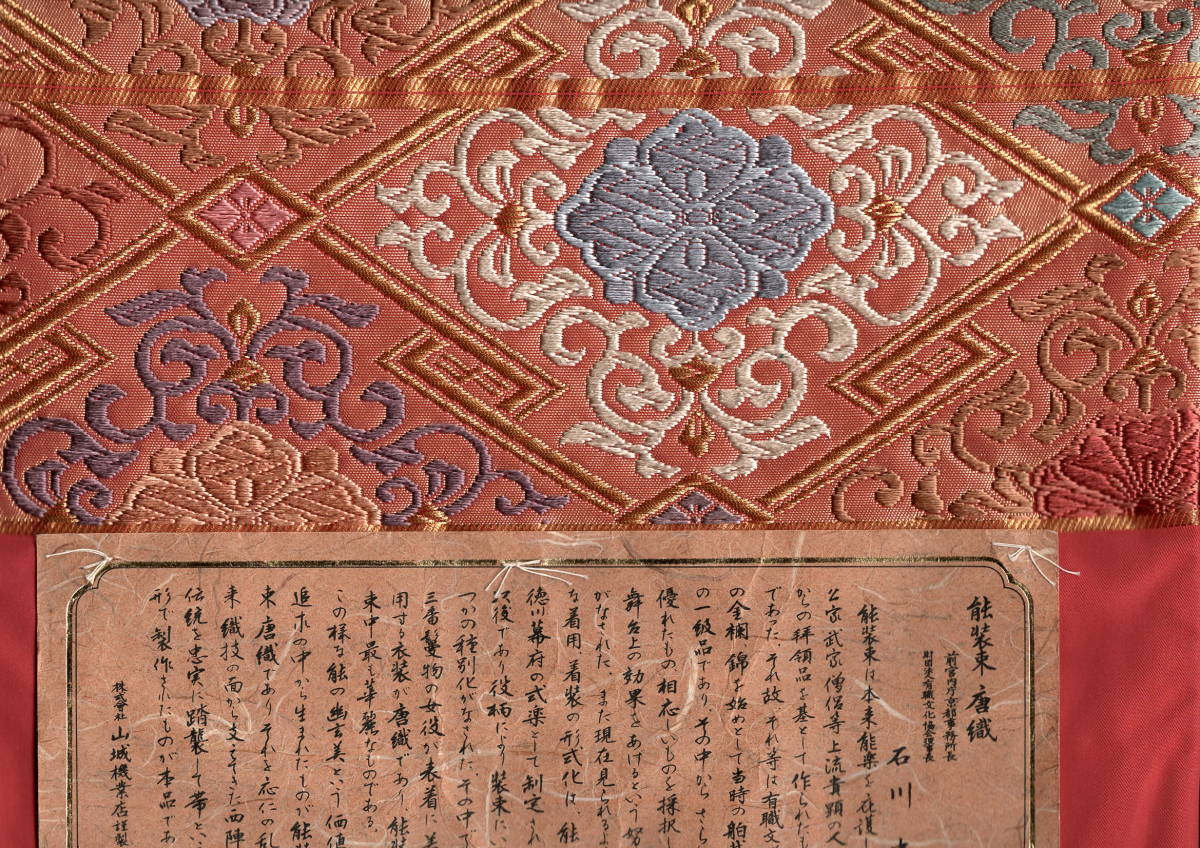 能装束 唐織
前宮内庁京都事務所長
財団法人有職文化協会理事長
石川
能装束は本来能楽を庇護し
公家武家僧侶等上流貴顕の人
からの拝領品を基として作られたも
であった。それ故それ等は有職文
の金襴、錦を始めとして当時の舶
の一級品であり、その中からさら
優れたもの相応しいものを採択し
舞台上の効果をあげるという努
がなされた。また現在見られるよ
な着用、着装の形式化は、能
徳川幕府の式楽として制定され
以後であり役柄により装束にい
つかの種別化がなされた。その中で
三番鬘物の女役が表着に着
用する衣装が唐織であり、能装
束中最も華麗なものである。
この様な能の幽玄美という価値
追求の中から生まれたものが能
束唐織であり それを応仁の乱
来織技の面から支えてきた西陣
伝統を忠実に踏襲して帯とい
形で製作されたものが本品であ
株式会社山城機業店謹製